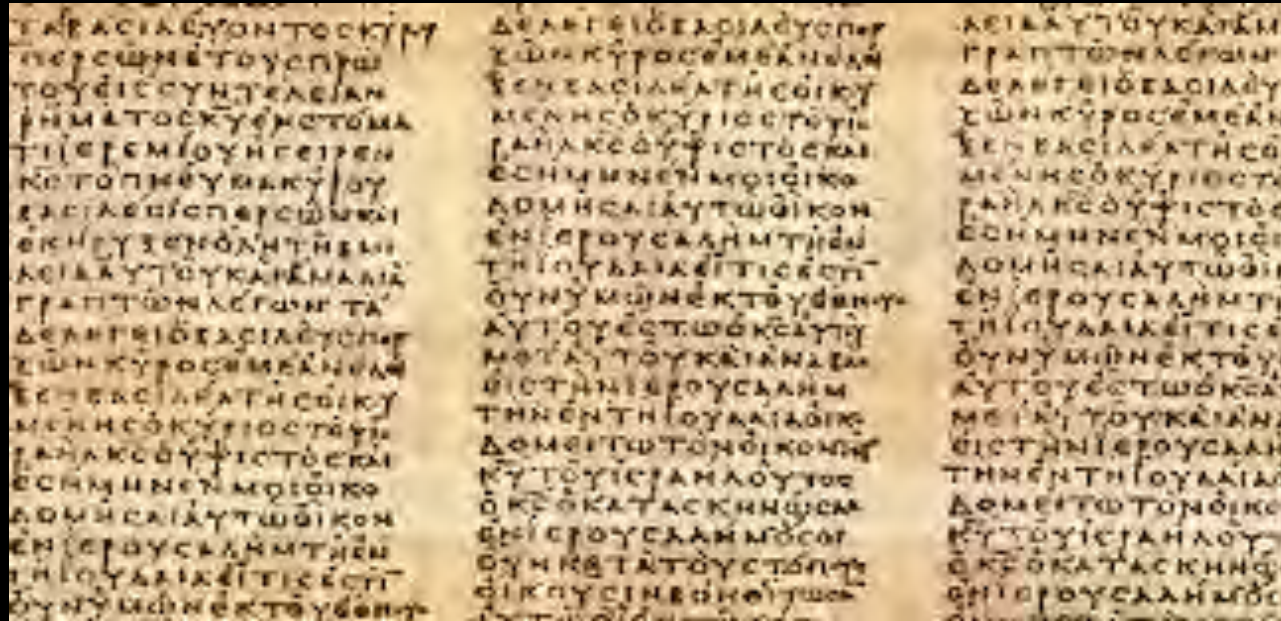 ΒΑCΙΛΕΥΟΝΤΟCΚΥΡΟΥ
ΠΕΡCΩΝΕΤΟΥCΠΡΩ
ΤΟΥΕΙCCΥΝΤΕΛΕΙΑΝ
ΡΗΜΑΤΟCΚ̅Υ̅ΕΝCΤΟΜΑ
ΤΙΙΕΡΕΜΙΟΥΗΓΕΙΡΕΝ
Κ̅C̅ΤΟΠΝΕΥΜΑΚΥΡΟΥ
ΒΑCΙΛΕΩCΠΕΡCΩΝΚΑΙ
ΕΚΗΡΥΞΕΝΟΛΗΤΗΒΑCΙ
ΛΕΙΑΑΥΤΟΥΚΑΙΑΜΑΔΙΑ
ΓΡΑΠΤΩΝΛΕΓΩΝΤΑ
ΔΕΛΕΓΕΙΟΒΑCΙΛΕΥCΠΕΡ
CΩΝΚΥΡΟCΕΜΕΑΝΕΔΕΙ
ΞΕΝΒΑCΙΛΕΑΤΗCΟΙΚΟΥ
ΜΕΝΗCΟΚΥΡΙΟCΤΟΥΙC
ΡΑΗΛΚ̅C̅ΟΥΨΙCΤΟCΚΑΙ
ΕCΗΜΗΝΕΝΜΟΙΟΙΚΟ
ΔΟΜΗCΑΙΑΥΤΩΟΙΚΟΝ
ΕΝΙΕΡΟΥCΑΛΗΜΤΗΕΝ
ΤΗΙΟΥΔΑΙΑΕΙΤΙCΕCΤΙ̅
ΟΥΝΥΜΩΝΕΚΤΟΥΕΘΝΟΥC
ΔΕΛΕΓΕΙΟΒΑCΙΛΕΥCΠΕΡ
CΩΝΚΥΡΟCΕΜΕΑΝΕΔΕΙ
ΞΕΝΒΑCΙΛΕΑΤΗCΟΙΚΟΥ
ΜΕΝΗCΟΚΥΡΙΟCΤΟΥΙC
ΡΑΗΛΚ̅C̅ΟΥΨΙCΤΟCΚΑΙ
ΕCΗΜΗΝΕΝΜΟΙΟΙΚΟ
ΔΟΜΗCΑΙΑΥΤΩΟΙΚΟΝ
ΕΝΙΕΡΟΥCΑΛΗΜΤΗΕΝ
ΤΗΙΟΥΔΑΙΑΕΙΤΙCΕCΤΙ̅
ΟΥΝΥΜΩΝΕΚΤΟΥΕΘΝΟΥC
ΑΥΤΟΥΕCΤΩΟΚ̅C̅ΑΥΤΟΥ
ΜΕΤΑΥΤΟΥΚΑΙΑΝΑΒΑC
ΕΙCΤΗΝΙΕΡΟΥCΑΛΗΜ
ΤΗΝΕΝΤΗΙΟΥΔΑΙΑΟΙΚΟ
ΔΟΜΕΙΤΩΤΟΝΟΙΚΟΝΤΟΥ
Κ̅Υ̅ΤΟΥΙCΡΑΗΛΟΥΤΟC
ΟΚ̅C̅ΟΚΑΤΑCΚΗΝΩCΑC
ΕΝΙΕΡΟΥCΑΛΗΜΟCΟΙ
ΟΥΝΚΑΤΑΤΟΥCΤΟΠΟΥC
ΟΙΚΟΥCΙΝΒΟΗΘΕΙΤΩCΑΝ
ΛΕΙΑΑΥΤΟΥΚΑΙΑΜ
ΓΡΑΠΤΩΝΛΕΓΩΝ
ΔΕΛΕΓΕΙΟΒΑCΙΛΕΥ
CΩΝΚΥΡΟCΕΜΕΑΝ
ΞΕΝΒΑCΙΛΕΑΤΗCΟ
ΜΕΝΗCΟΚΥΡΙΟCΤΟ
ΡΑΗΛΚ̅C̅ΟΥΨΙCΤΟC
ΕCΗΜΗΝΕΝΜΟΙΟΙ
ΔΟΜΗCΑΙΑΥΤΩΟΙΚ
ΕΝΙΕΡΟΥCΑΛΗΜΤΗ
ΤΗΙΟΥΔΑΙΑΕΙΤΙCΕ
ΟΥΝΥΜΩΝΕΚΤΟΥ
ΑΥΤΟΥΕCΤΩΟΚ̅C̅Α
ΜΕΤΑΥΤΟΥΚΑΙΑΝ
ΕΙCΤΗΝΙΕΡΟΥCΑΛΗ
ΤΗΝΕΝΤΗΙΟΥΔΑΙΑ
ΔΟΜΕΙΤΩΤΟΝΟΙΚΟ
Κ̅Υ̅ΤΟΥΙCΡΑΗΛΟΥΤ
ΟΚ̅C̅ΟΚΑΤΑCΚΗΝΩ
ΕΝΙΕΡΟΥCΑΛΗΜΟC